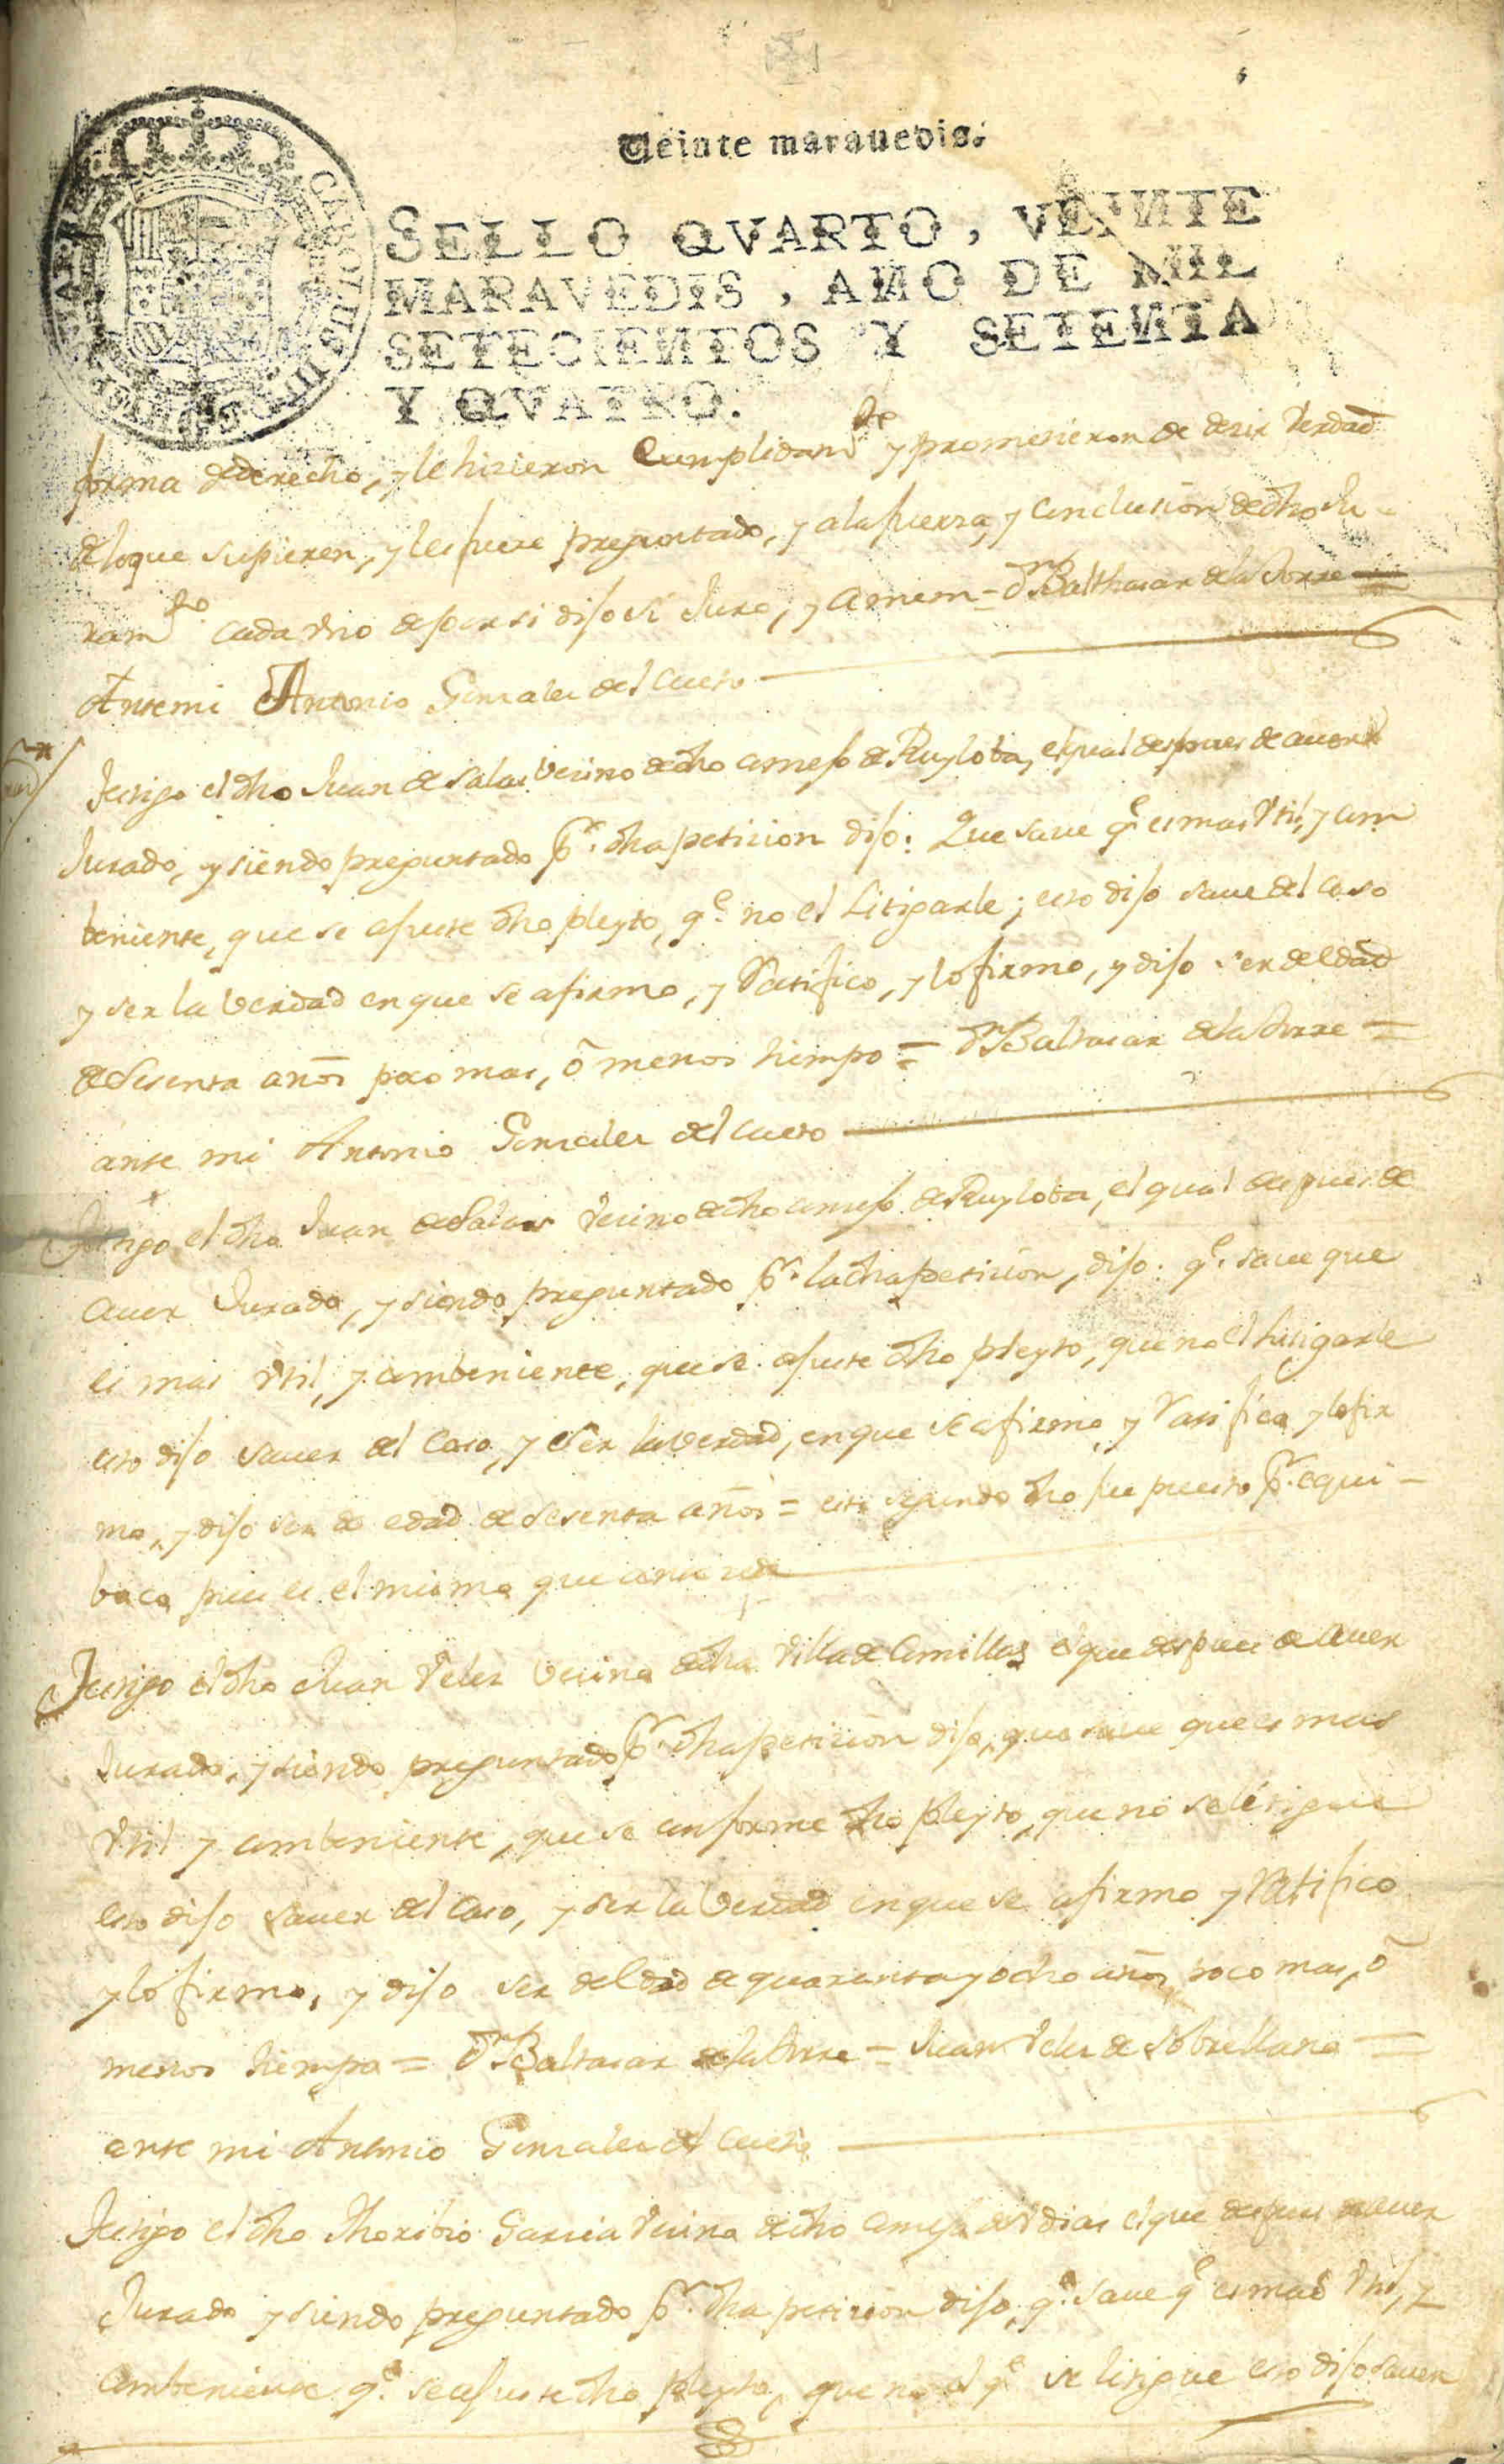 Veinte marauedis.
SELLO QVARTO, VEINTE
MARAVEDIS, AÑO DE MIL
SETECIENTOS Y SETENTA
Y QVATRO.
forma dederecho, y le hizieron Cumplidamte y prometieron de dezir Verdad
de loque supieren, y les fuere preguntado, y alafuerza, y conclusion dedho Ju-
ramto cada vno depor si dijo si Juro, y amem = Dn Balthasar dela Torre =
Antemi Antonio Gonzalez del Cueto
Testigo el dho Juan de Salas Vezino dedho conzejo de Ruyloba, elqual despues de auer
Jurado, y siendo preguntado pr. dha petizion dijo: Que saue qe es mas Vtil, y com
beniente, que se ajuste dho pleyto, qe no el Litigarle; esto dijo saue del Caso
y ser la Verdad en que se afirmo, y Ratifico, y lo firmo, y dijo ser deEdad
deSesenta años poco mas, ó menos tiempo = Dn Baltasar dela Torre =
ante mi Antonio Gonzalez del Cueto
Testigo el dho Juan deSalas Vezino dedho conzejo de Ruyloba, el qual despues de
auer Jurado, y siendo preguntado pr. ladha petizion, dijo. qe. saue que
es mas Vtil, y combeniente, que se ajuste dho pleyto, que no el Litigarle
esto dijo sauer del Caso, y ser la Verdad, en que se afirmo, y Ratifico y lo fir
mo, y dijo ser de edad de sesenta años = este segundo dho fue puesto pr. equi-
boco pues es el mismo que antezede
Testigo el dho Juan Velez Vezino dedha Villa de Comillas el que despues de auer
Jurado, y siendo preguntado pr. dha petizion dijo, que saue que es mas
Vtil y combeniente, que se conforme dho pleyto, que no se litigue
esto dijo sauer del Caso, y ser la Verdad en que se afirmo y Ratifico
y lo firmo, y dijo ser deEdad de quarenta y ocho años poco mas, ó
menos tiempo = Dn Baltasar dela Torre = Juan Velez de Sobrellano =
ante mi Antonio Gonzalez del Cueto
Testigo el dho Thoribio Garcia Vezino dedho conzejo deVdias el que despues de auer
Jurado y siendo preguntado pr. dha petizion dijo, qe. saue qe es mas Vtil, y
Combeniente qe. se ajuste dho pleyto, que no el qe se litigue esto dijo sauer